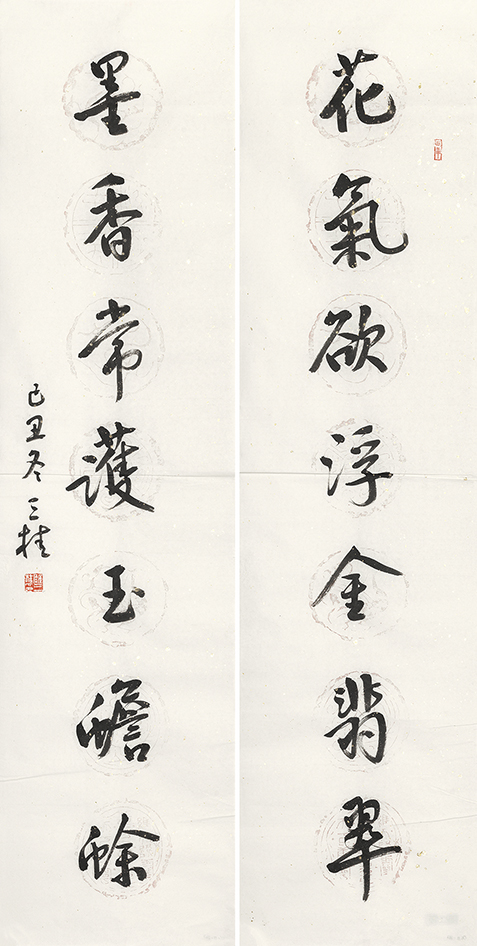 花氣欲浮金翡翠
墨香常護玉蟾蜍
己丑冬